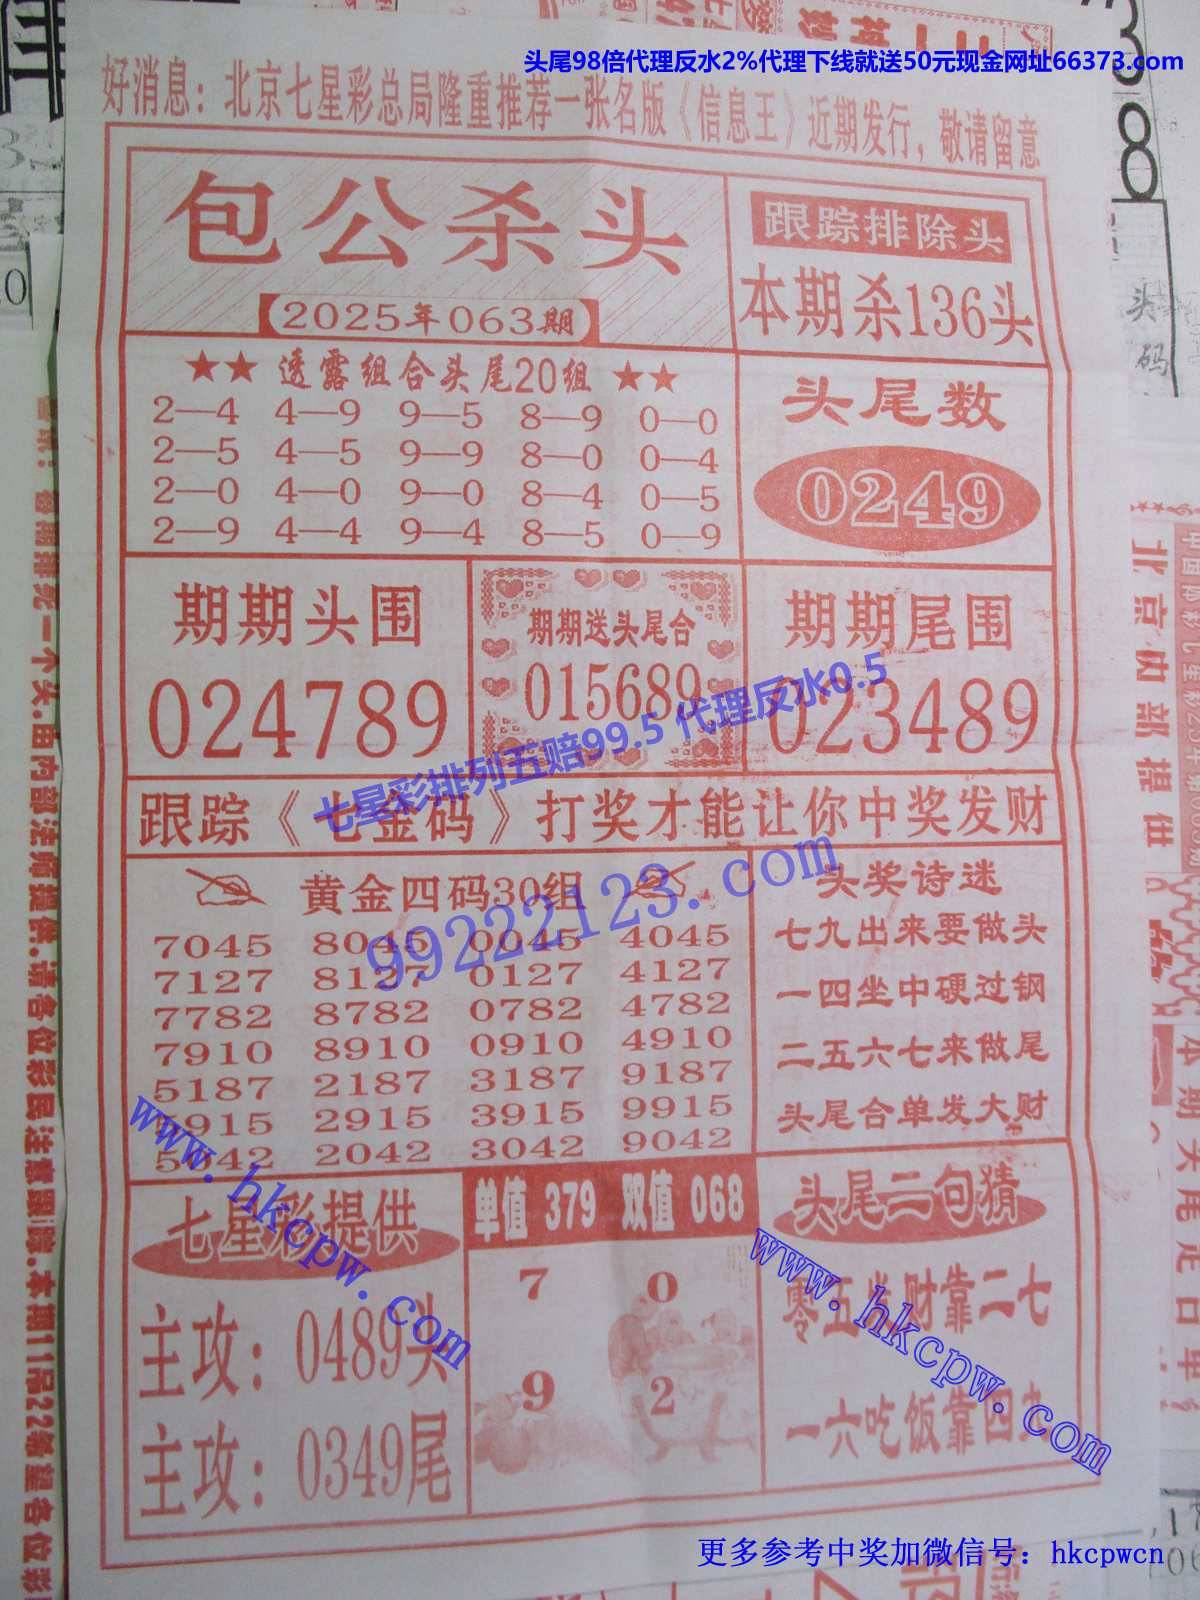 头尾98倍代理反水2%代理下线就送50元现金网址66373.com
好消息：北京七星彩总局隆重推荐一张名版《信息王》近期发行，敬请留意
包公杀头
2025年063期
跟踪排除头
本期杀136头
★★ 透露组合头尾20组 ★★
2—4 4—9 9—5 8—9 0—0
2—5 4—5 9—9 8—0 0—4
2—0 4—0 9—0 8—4 0—5
2—9 4—4 9—4 8—5 0—9
头尾数
0249
期期头围
024789
期期送头尾合
015689
期期尾围
023489
七星彩排列五赔99.5 代理反水0.5
跟踪《七金码》打奖才能让你中奖发财
黄金四码30组
7045 8045 0045 4045
7127 8127 0127 4127
7782 8782 0782 4782
7910 8910 0910 4910
5187 2187 3187 9187
5915 2915 3915 9915
5042 2042 3042 9042
99222123.com
头奖诗迷
七九出来要做头
一四坐中硬过钢
二五六七来做尾
头尾合单发大财
七星彩提供
主攻：0489头
主攻：0349尾
单值 379 双值 068
7 0
9 2
头尾二句猜
零五发财靠二七
一六吃饭靠四九
www.hkcpw.com
www.hkcpw.com
更多参考中奖加微信号：hkcpwcn
北京内部提供